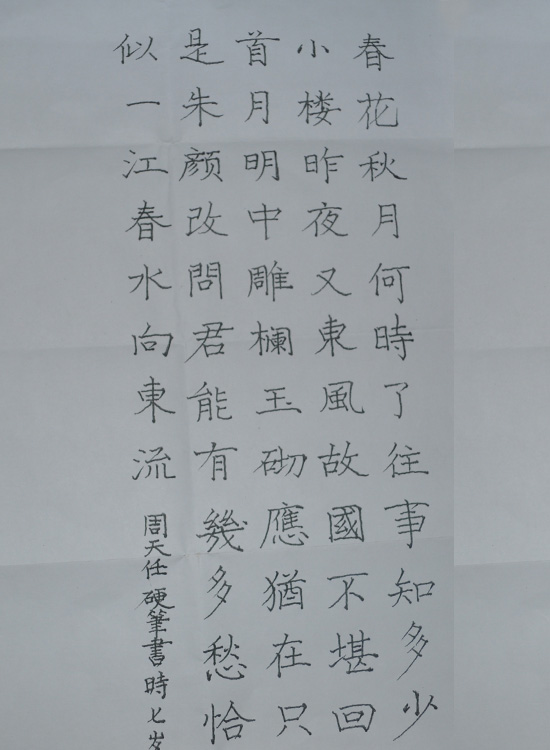 春花秋月何時了往事知多少
小楼昨夜又東風故國不堪回
首月明中雕欄玉砌應猶在只
是朱颜改問君能有幾多愁恰
似一江春水向東流
周天任硬筆書時七岁